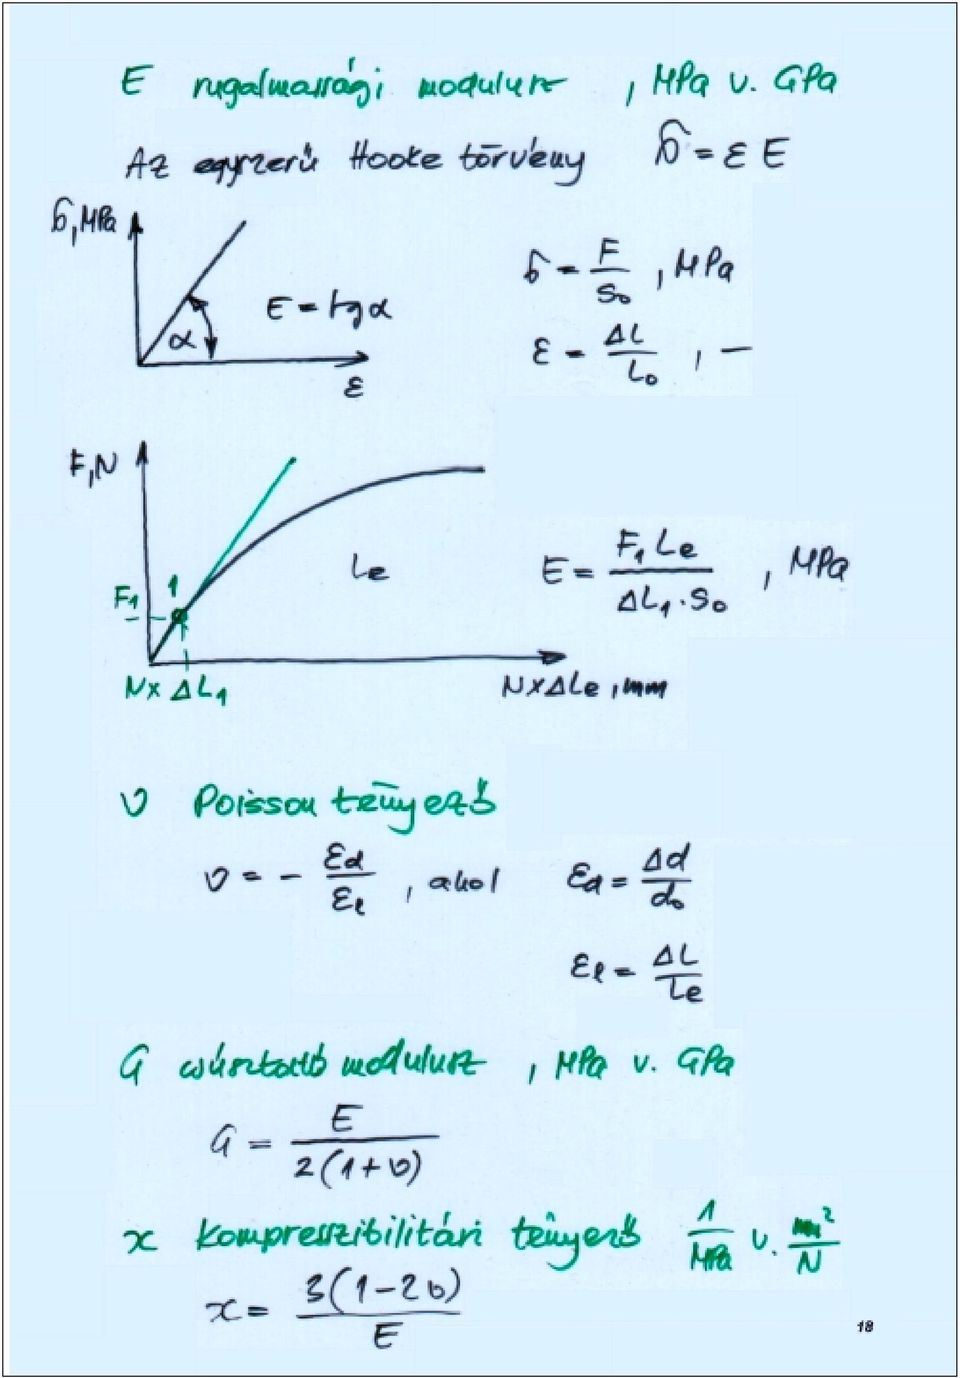 E rugalmassági modulusz , MPa v. GPa
Az egyszerű Hooke törvény σ = ε E
σ, MPa
E = tg α
α
ε
σ = F / S₀ , MPa
ε = ΔL / L₀ , –
F, N
Le
F₁
1
N x ΔL₁
N x ΔLe , mm
E = F₁ Le / ΔL₁ · S₀ , MPa
ν Poisson tényező
ν = - εd / εl , ahol εd = Δd / d₀
εl = ΔL / Le
G csúsztató modulusz , MPa v. GPa
G = E / 2(1+ν)
ϰ kompresszibilitási tényező 1 / MPa v. mm² / N
ϰ = 3(1-2ν) / E
18